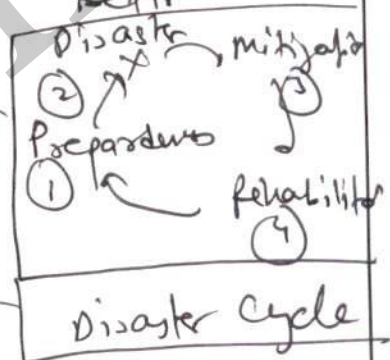 Disaster
Mitigatio
②
③
Preparedness
①
Rehabilitat
④
Disaster Cycle